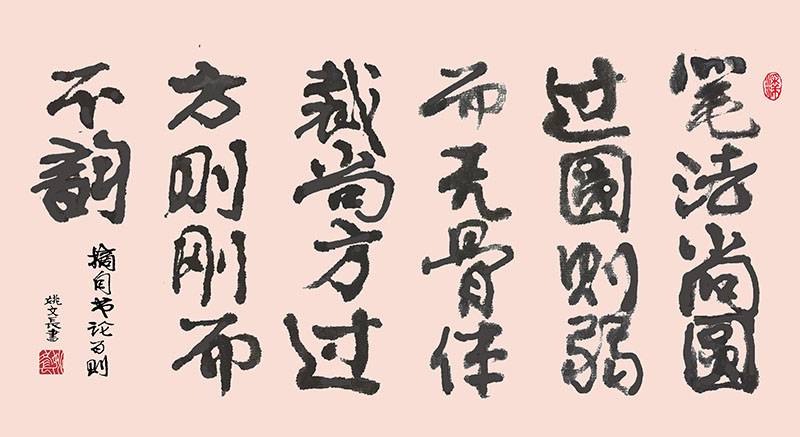 笔法尚圆
过圆则弱
而无骨体
裁尚方过
方则刚而
不韵
摘自书论则
姚文長書